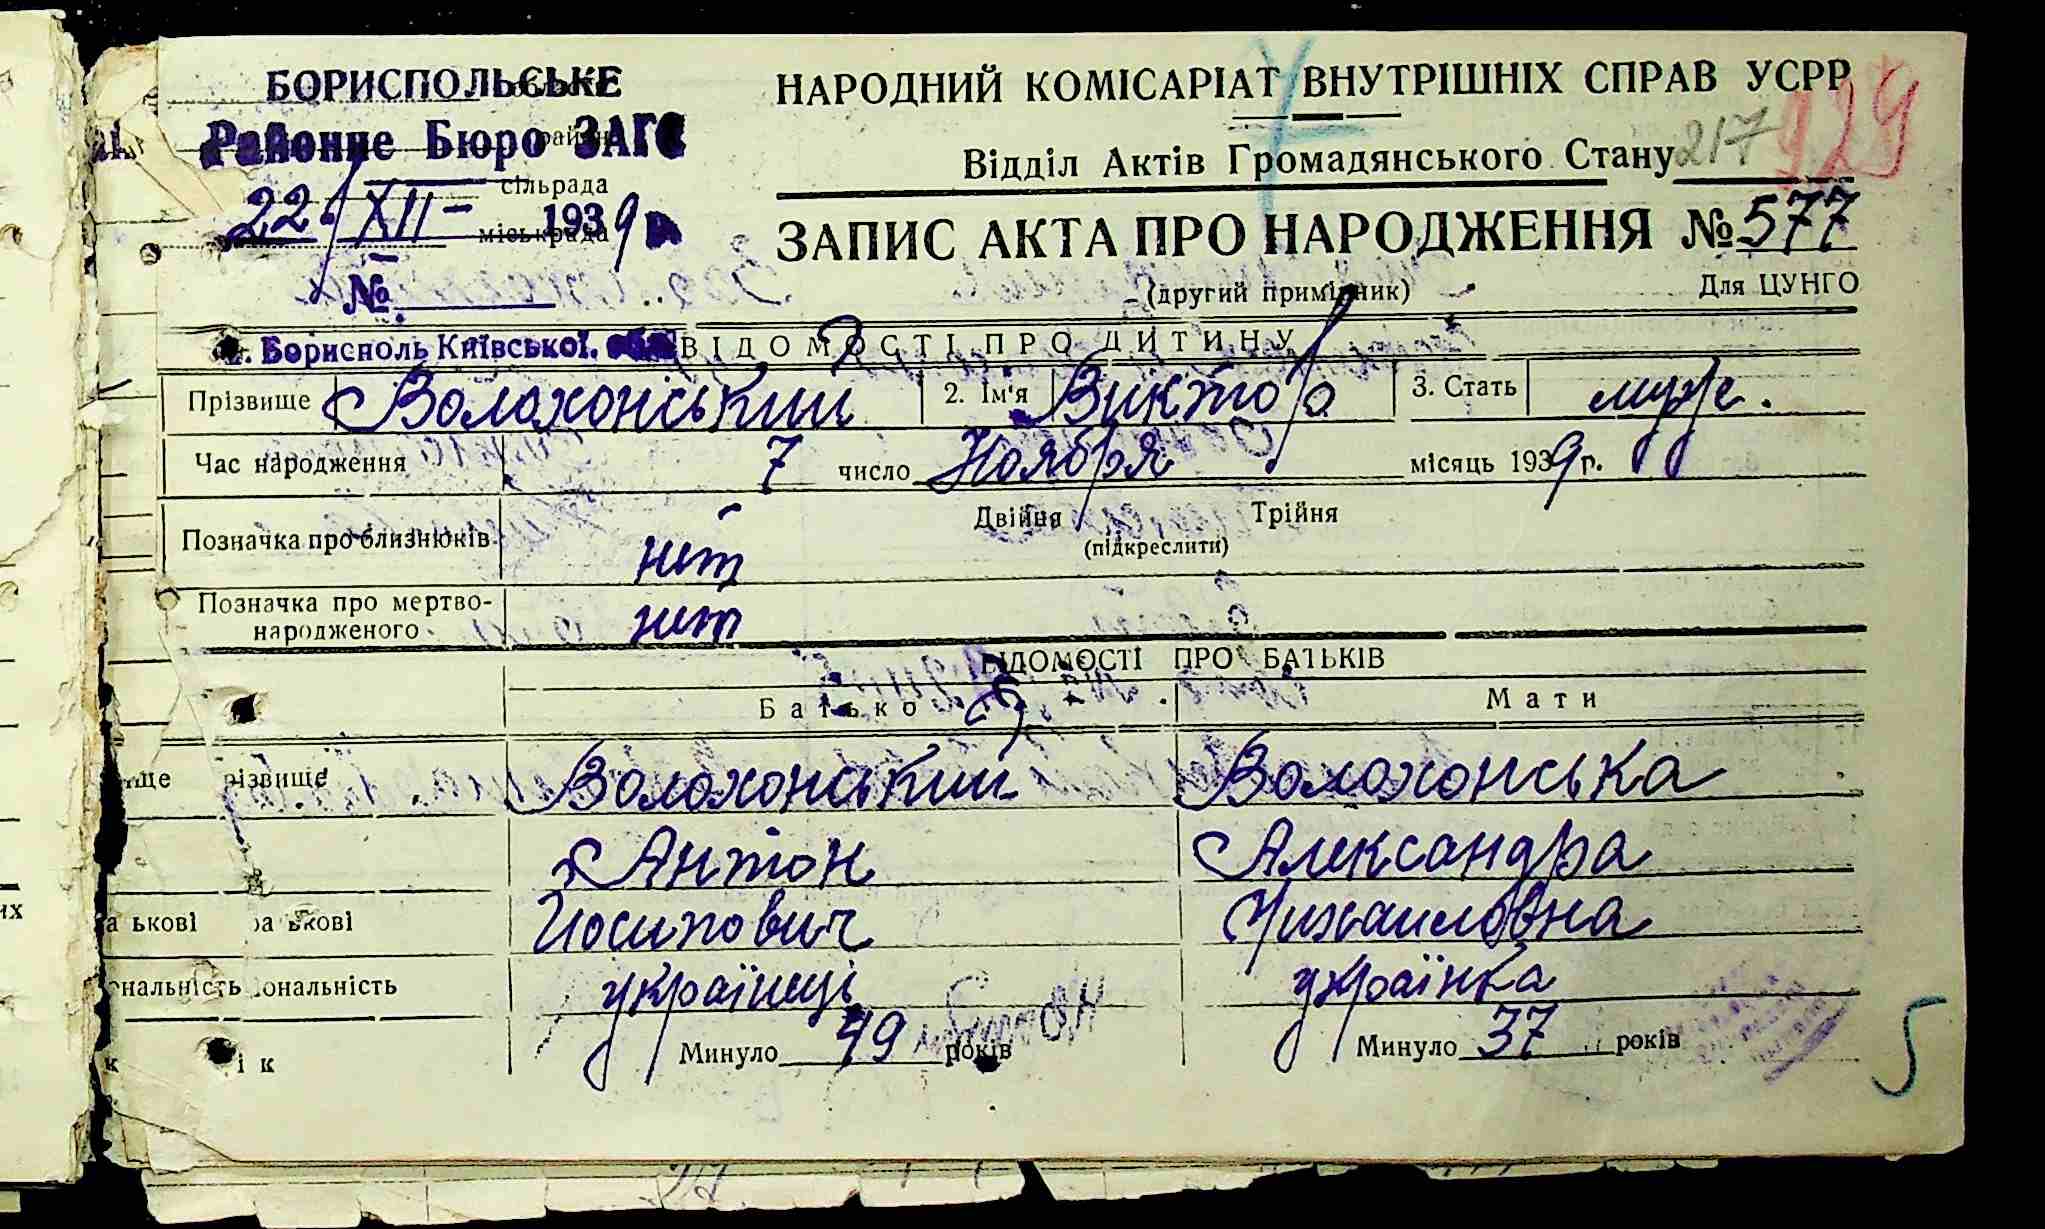 БОРИСПОЛЬСЬКЕ
Районне Бюро ЗАГС
сільрада
22/XII- 1939
міськрада
№
м. Бориспіль Київської. обл.
НАРОДНИЙ КОМІСАРІАТ ВНУТРІШНІХ СПРАВ УСРР
Відділ Актів Громадянського Стану 217 929
ЗАПИС АКТА ПРО НАРОДЖЕННЯ № 577
(другий примірник) Для ЦУНГО
ВІДОМОСТІ ПРО ДИТИНУ
Прізвище Волохонський 2. Ім'я Виктор 3. Стать муж.
Час народження 7 число Ноября місяць 1939 г.
Двійня Трійня
Позначка про близнюків нет (підкреслити)
Позначка про мертво-
народженого нет
ВІДОМОСТІ ПРО БАТЬКІВ
Батько Мати
ище різвище Волохонський Волохонська
Антон Александра
ькові ькові Йосипович Михаиловна
ональність ональність українці українка
к ік Минуло 49 років Минуло 37 років
5